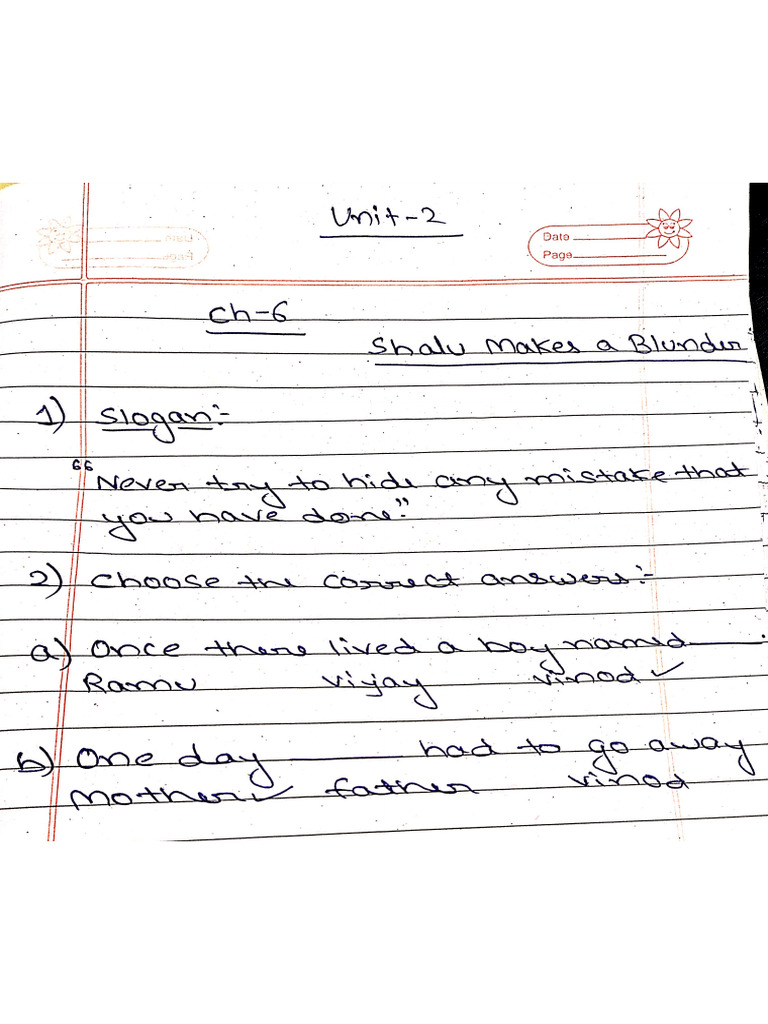 Unit-2
Date
Page
Ch-6
Shalu Makes a Blunder
1) Slogan:-
"Never try to hide any mistake that
you have done."
2) Choose the correct answers:-
a) Once there lived a boy named ______.
Ramu vijay vinod ✓
b) One day ______ had to go away
Mother ✓ father vinod